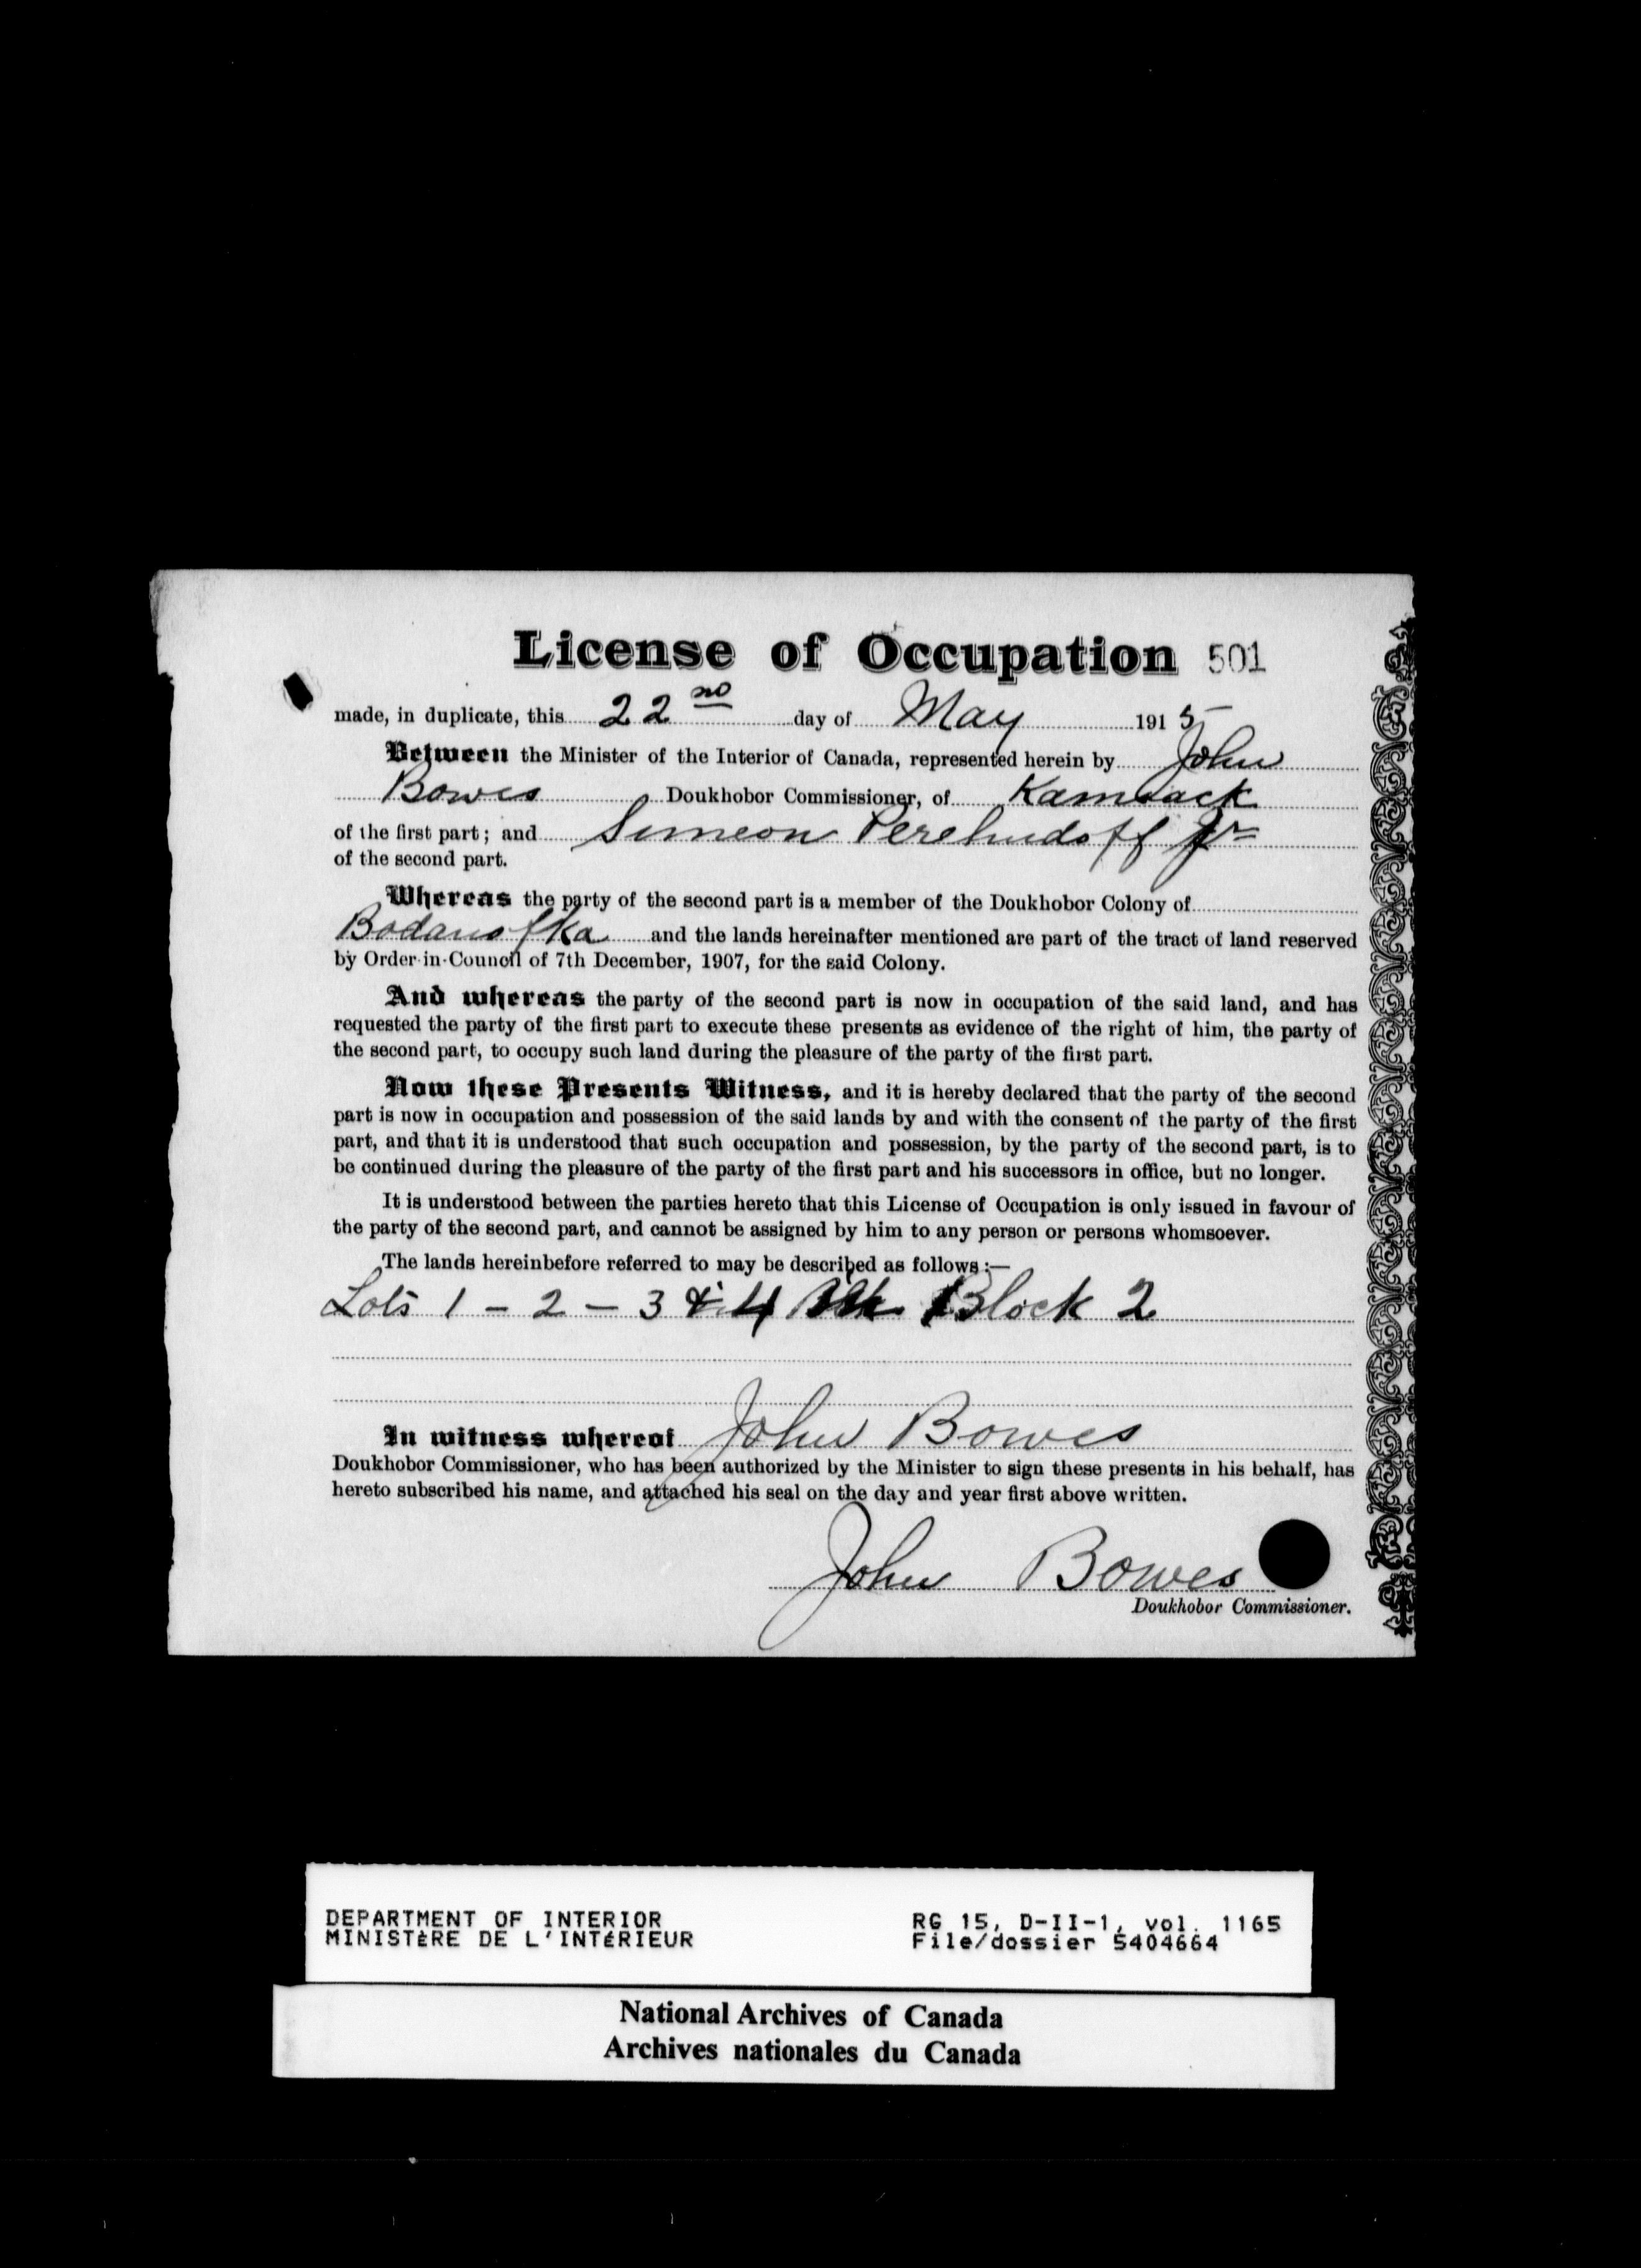 License of Occupation 501
made, in duplicate, this 22nd day of May 1915
Between the Minister of the Interior of Canada, represented herein by John
Bowes Doukhobor Commissioner, of Kamsack
of the first part; and Simeon Perehudoff Jr
of the second part.
Whereas the party of the second part is a member of the Doukhobor Colony of
Bodanofka and the lands hereinafter mentioned are part of the tract of land reserved
by Order-in-Council of 7th December, 1907, for the said Colony.
And whereas the party of the second part is now in occupation of the said land, and has
requested the party of the first part to execute these presents as evidence of the right of him, the party of
the second part, to occupy such land during the pleasure of the party of the first part.
Now these Presents Witness, and it is hereby declared that the party of the second
part is now in occupation and possession of the said lands by and with the consent of the party of the first
part, and that it is understood that such occupation and possession, by the party of the second part, is to
be continued during the pleasure of the party of the first part and his successors in office, but no longer.
It is understood between the parties hereto that this License of Occupation is only issued in favour of
the party of the second part, and cannot be assigned by him to any person or persons whomsoever.
The lands hereinbefore referred to may be described as follows:—
Lots 1 - 2 - 3 & 4 Block 2
In witness whereof John Bowes
Doukhobor Commissioner, who has been authorized by the Minister to sign these presents in his behalf, has
hereto subscribed his name, and attached his seal on the day and year first above written.
John Bowes
Doukhobor Commissioner.
DEPARTMENT OF INTERIOR RG 15, D-II-1, vol. 1165
MINISTÈRE DE L'INTÉRIEUR File/dossier 5404664
National Archives of Canada
Archives nationales du Canada